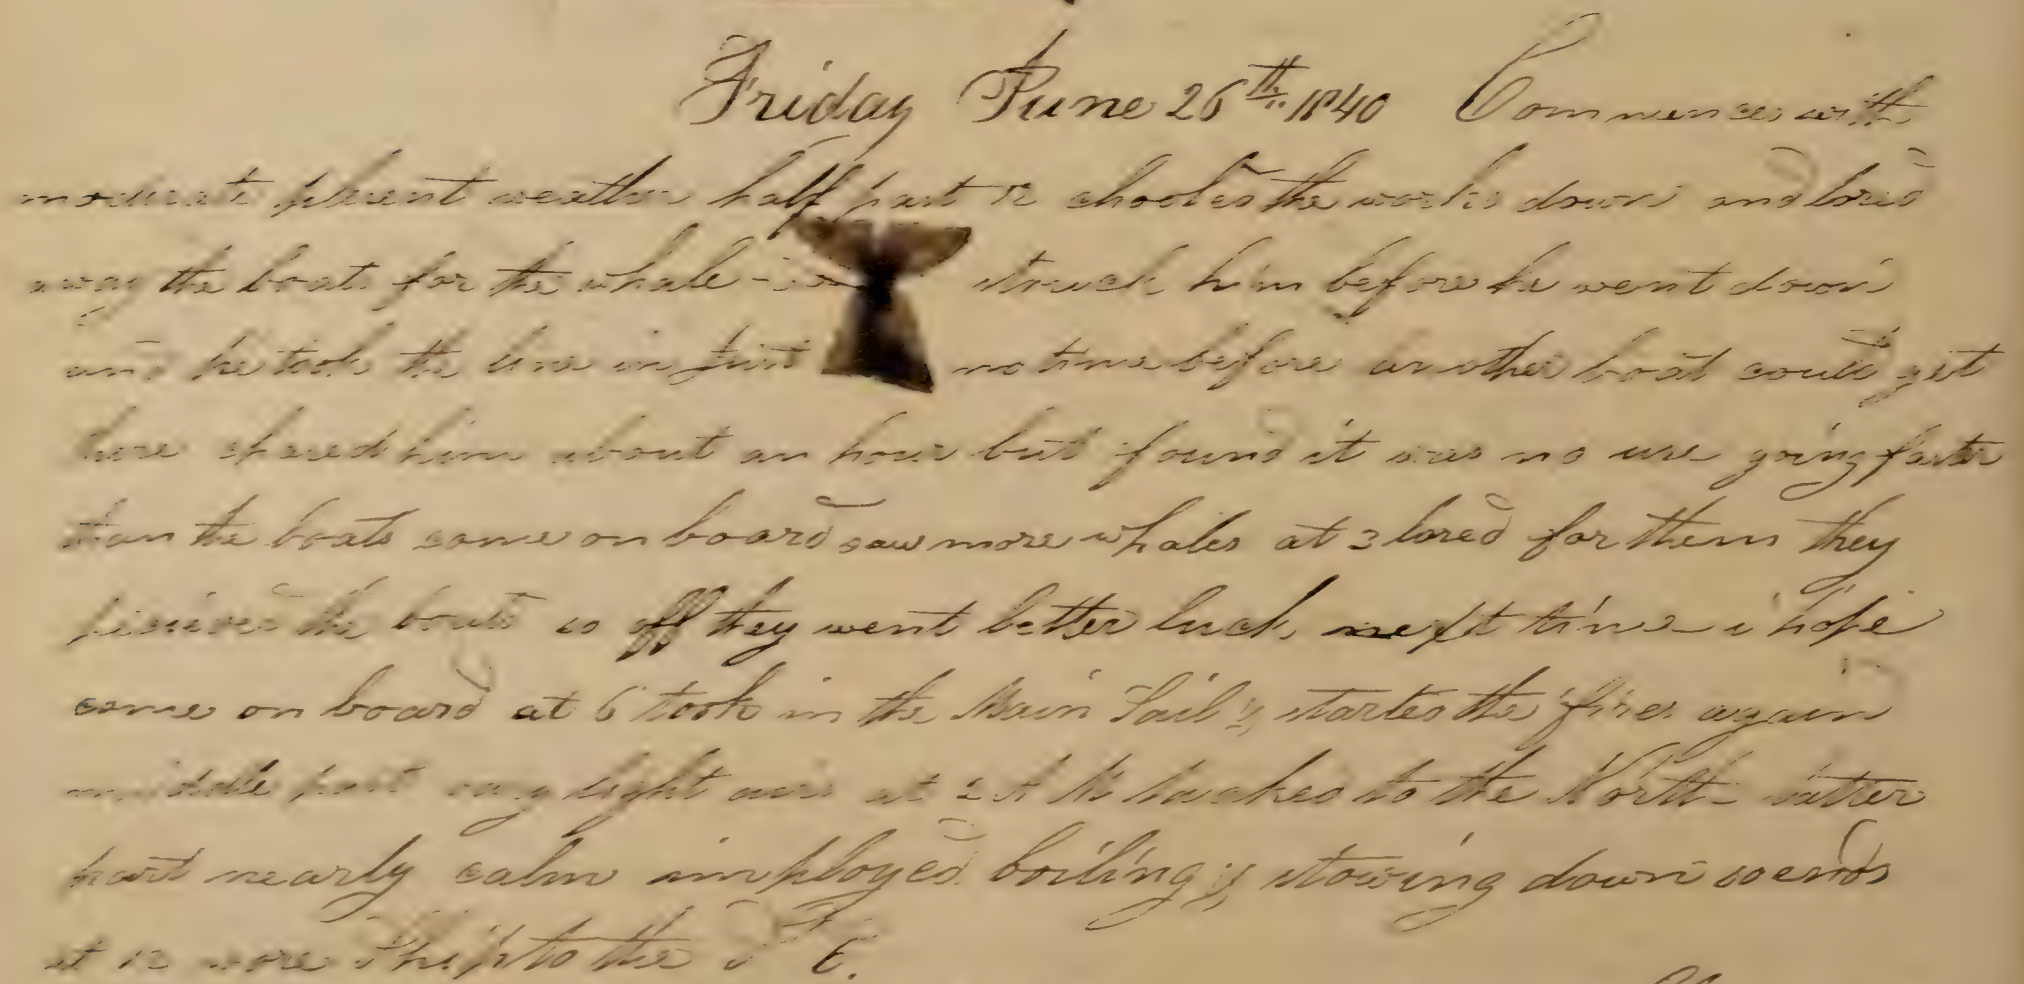 Friday June 26th 1840 Commences with
moderate plesent weather half past 12 the works down and lored
away the boats for the whale struck him before he went down
and he took the line in no time before another boat could get
here him about an hour but found it was no use going faster
than the boats come on board saw more whales at 3 lored for them they
the boats so off they went better luck next time i hope
come on board at 6 took in the Main Sail & started the fires again
middle part very light airs at 2 A M tacked to the North latter
part nearly calm imployed boiling & stowing down so ends
at 12 wore Ship to the S E.